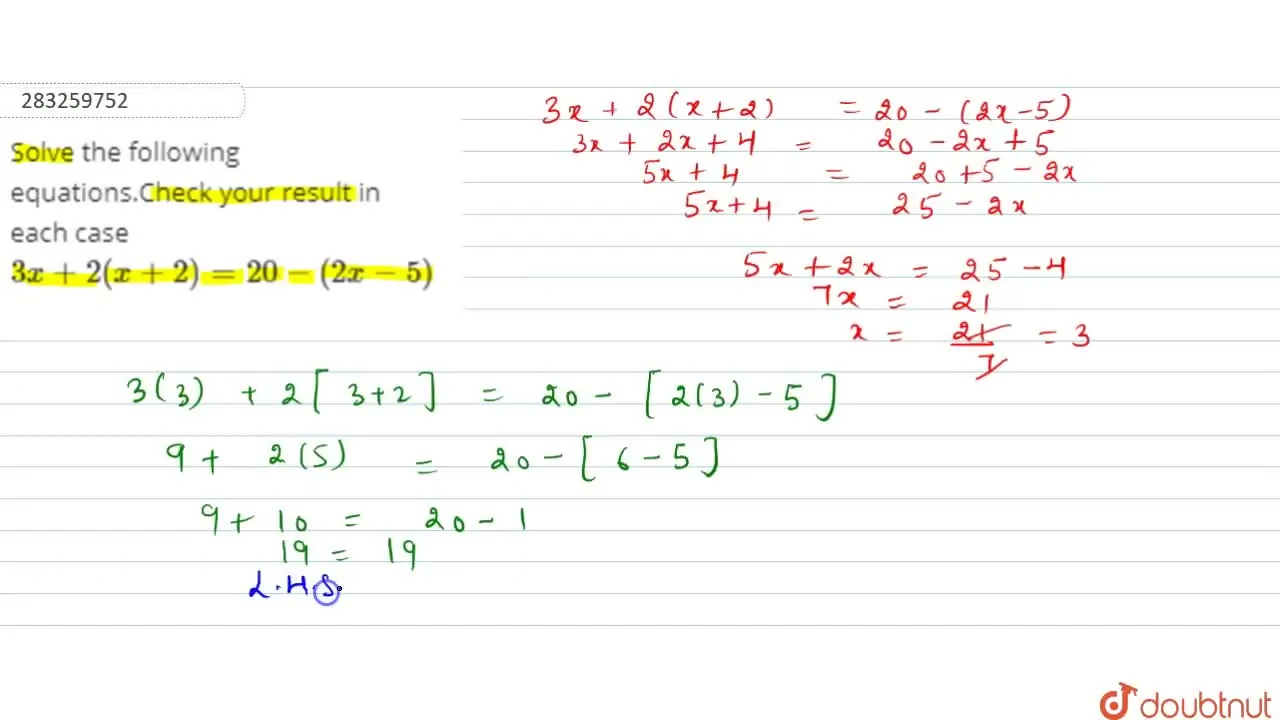 283259752
Solve the following
equations.Check your result in
each case
3x + 2(x + 2) = 20 − (2x − 5)
3x + 2(x+2) = 20 - (2x-5)
3x + 2x + 4 = 20 - 2x + 5
5x + 4 = 20+5 - 2x
5x+4 = 25 - 2x
5x+2x = 25 - 4
7x = 21
x = 21/7 = 3
3(3) + 2[ 3+2 ] = 20 - [ 2(3) - 5 ]
9 + 2(5) = 20 - [ 6 - 5 ]
9 + 10 = 20 - 1
19 = 19
L.H.S.
doubtnut